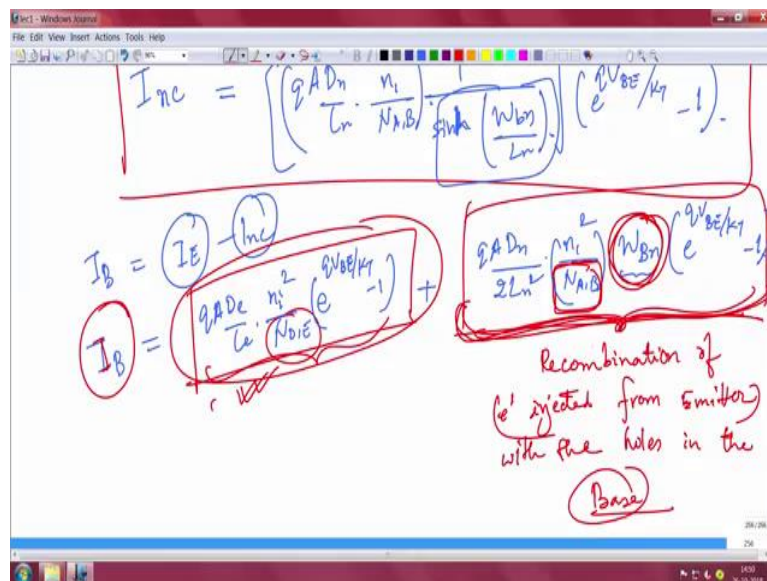 lec1 - Windows Journal
File Edit View Insert Actions Tools Help
I_nc = [(qADn/Ln · ni/N_A,B) · 1/sinh(W_bn/Ln)] (e^(qV_BE/KT) -1).
I_B = I_E - I_nc
I_B = qADe/Le · ni²/N_D,E (e^(qV_BE/KT) -1) + qADn/2Ln² · (ni²/N_A,B) W_Bn (e^(qV_BE/KT) -1)
Recombination of
(e' injected from Emitter)
with the holes in the
Base
256/266
256
14:50